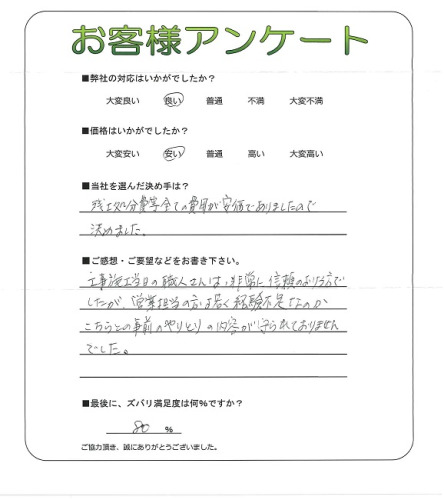 お客様アンケート
■弊社の対応はいかがでしたか？
大変良い 良い 普通 不満 大変不満
■価格はいかがでしたか？
大変安い 安い 普通 高い 大変高い
■当社を選んだ決め手は？
残土処分費等全ての費用が安価でありましたので
決めました。
■ご感想・ご要望などをお書き下さい。
工事施工当日の職人さんは、非常に信頼のおける方で
したが、営業担当の方は若く経験不足なのか
こちらとの事前のやりとりの内容が守られておりません
でした。
■最後に、ズバリ満足度は何%ですか？
80 %
ご協力頂き、誠にありがとうございました。